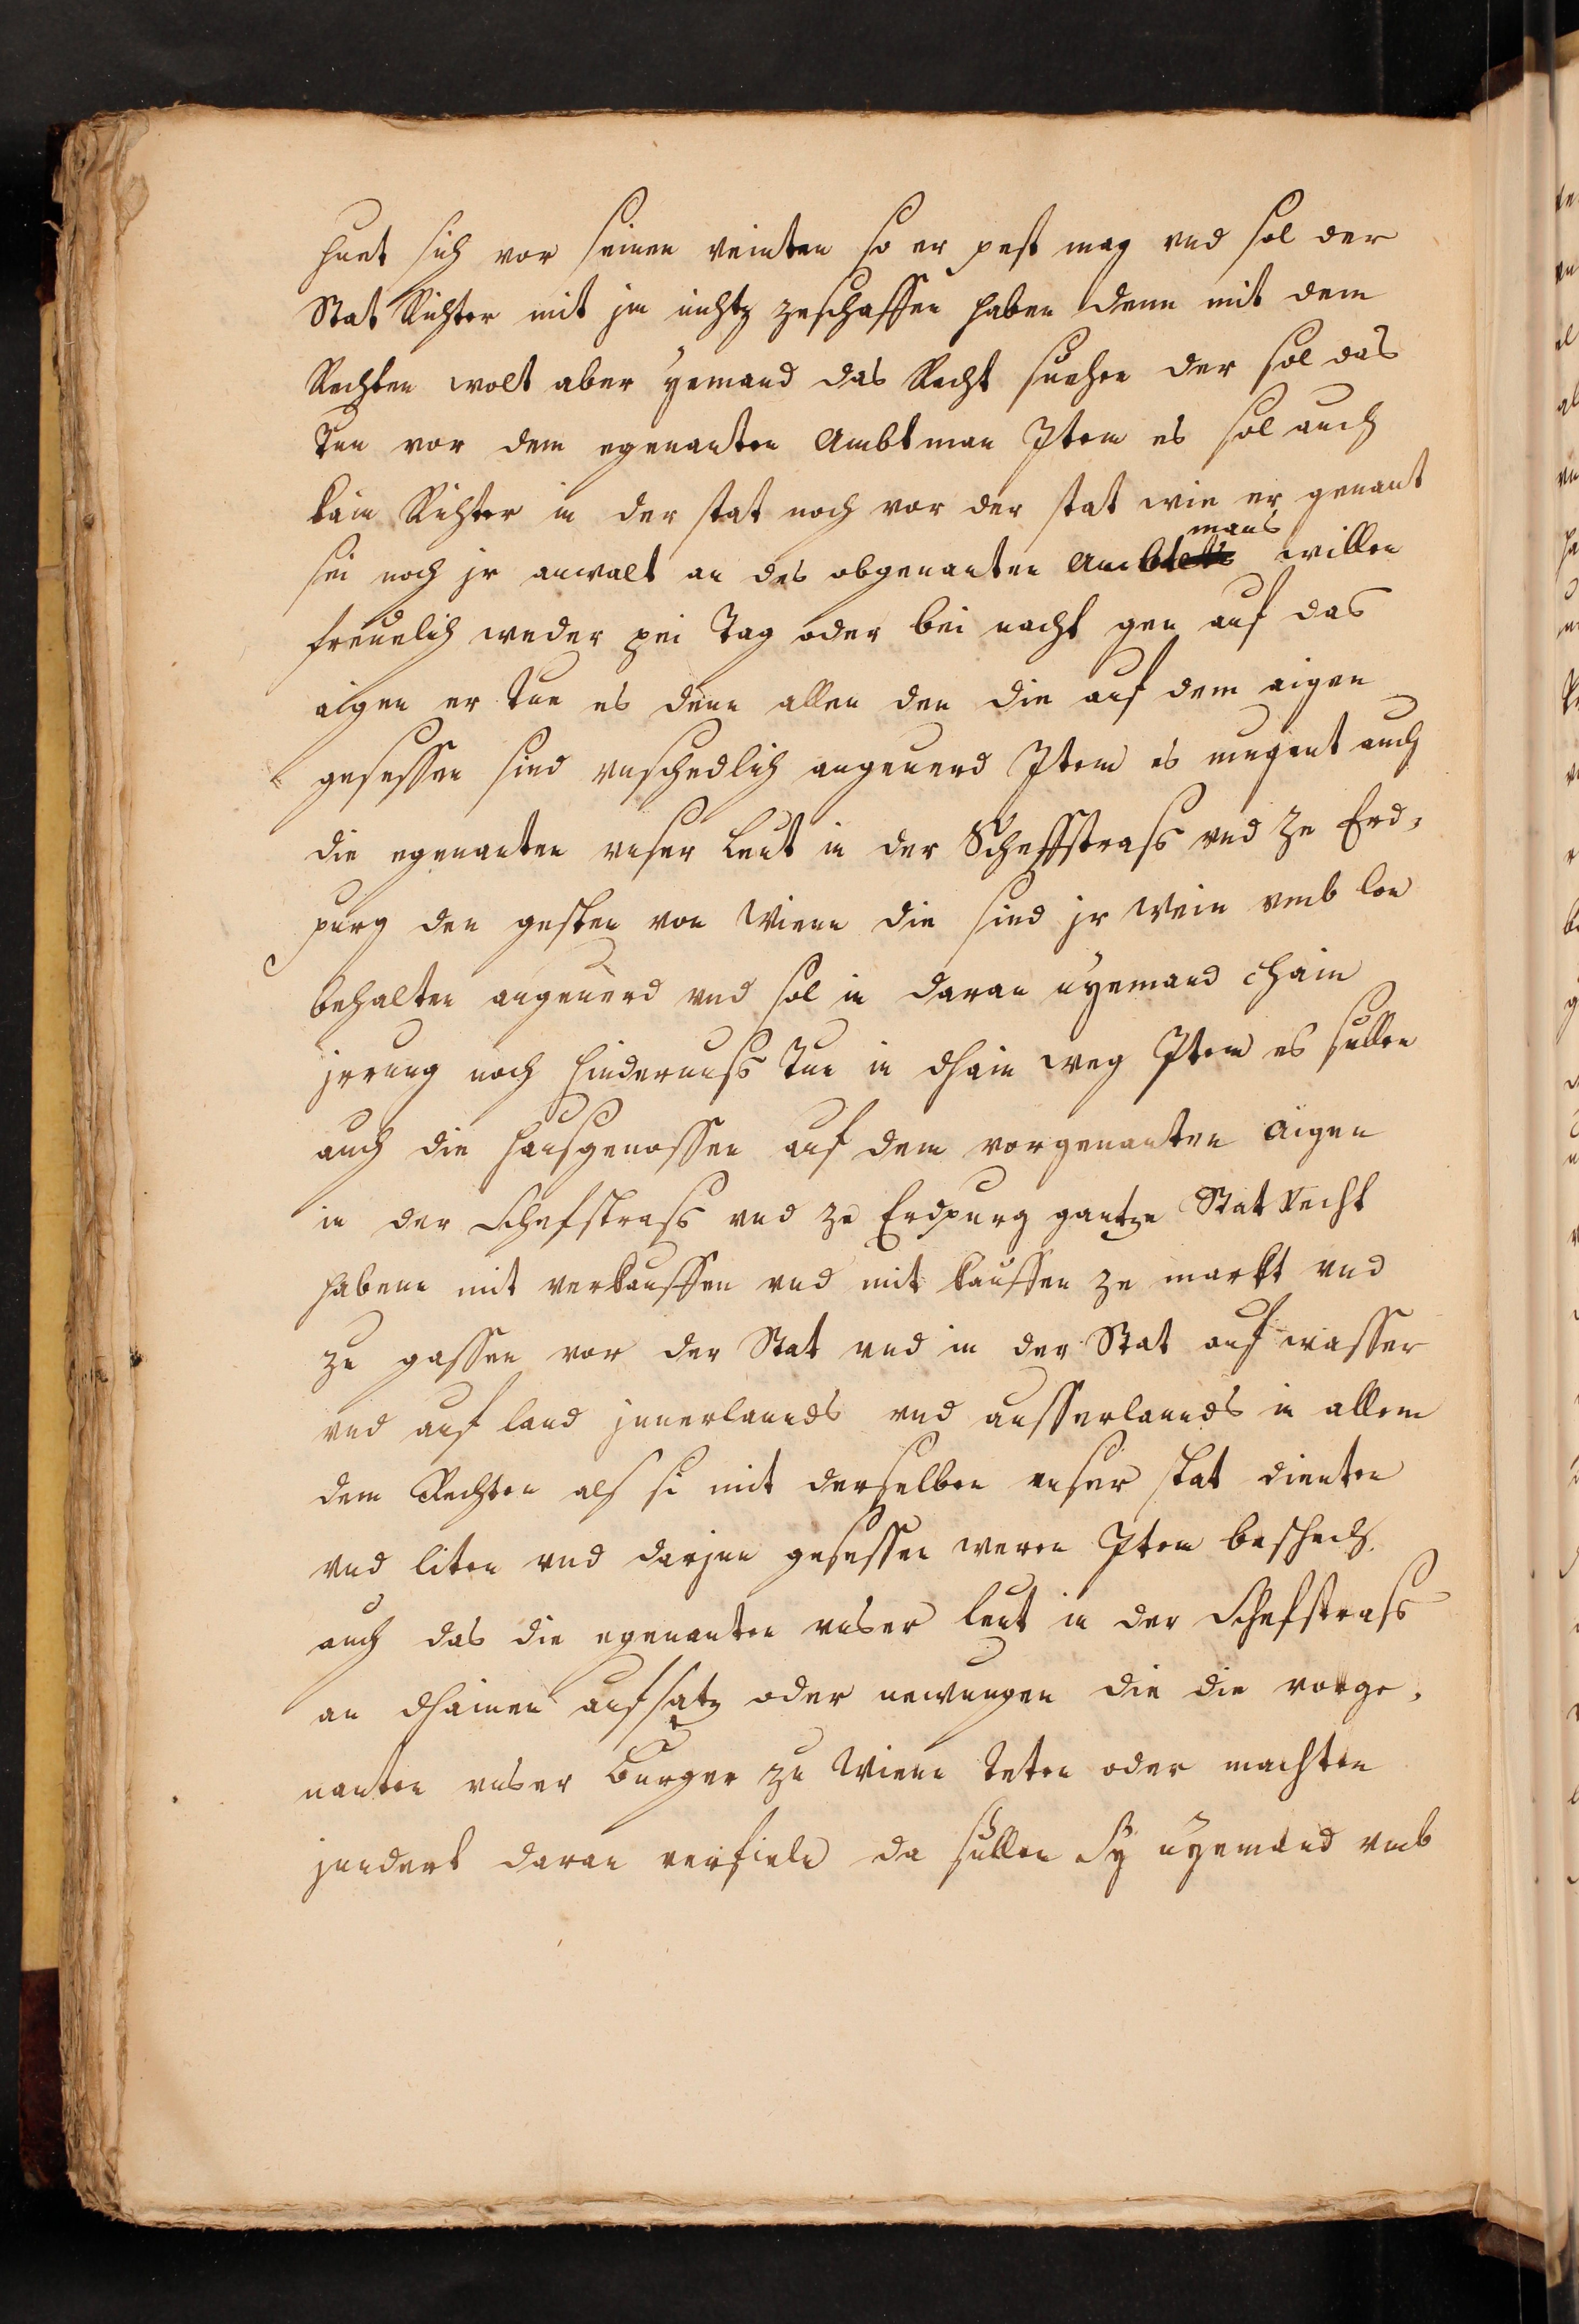 huet sich vor seinen veinten so er pest mag vnd sol der
Stat Richter mit jm nichtz zeschaffen haben denn mit dem
Rechten wolt aber yemand das Recht suchen der sol das
Tun vor dem egenanten Ambtman Item es sol auch
kain Richter in der stat noch vor der stat wie er genant
sei noch jr anwalt an des obgenanten Ambtmans willen
freuelich weder pei Tag oder bei nacht gen auf das
aigen er tue es denn allen den die auf dem aigen
gesessen sind vnschedlich angeuerd Item es mugent auch
die egenanten vnser Leut in der Scheffstrass vnd ze Erd-
purg den gesten von Wienn die sind jr Wein vmb lon
behalten angeuerd vnd sol in daran nyemand chain
jrrung noch hindernuss Tun in dhain weg Item es sullen
auch die hausgenossen auf dem vorgenanten Aigen
in der Schefstrass vnd ze Erdpurg gantze Stat Recht
habenn mit verkauffen vnd mit kauffen ze markt vnd
ze gassen vor der Stat vnd in der Stat auf wasser
vnd auf land jnnerlannds vnd ausserlannds in allem
dem Rechten als si mit derselben vnser stat dienten
vnd liten vnd darjnn gesessen weren Item beschech
auch das die egenanten vnser leut in der Schefstrass
an dhainen aufsatz oder newungen die die vorge-
nanten vnser Burger zu Wienn teten oder machten
jndert daran verfieln da sullen Sy nyemand vmb